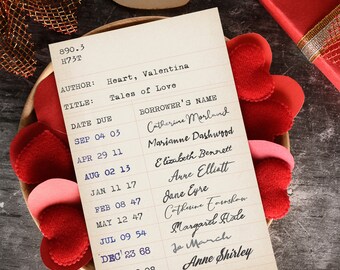 890.3
H73T
AUTHOR: Heart, Valentina
TITLE: Tales of Love
DATE DUE BORROWER'S NAME
SEP 04 03 Catherine Morland
APR 29 11 Marianne Dashwood
AUG 02 13 Elizabeth Bennett
JAN 11 17 Anne Elliott
FEB 08 47 Jane Eyre
MAY 12 47 Catherine Earnshaw
JUL 09 54 Margaret Hale
DEC 23 68 Jo March
08 Anne Shirley